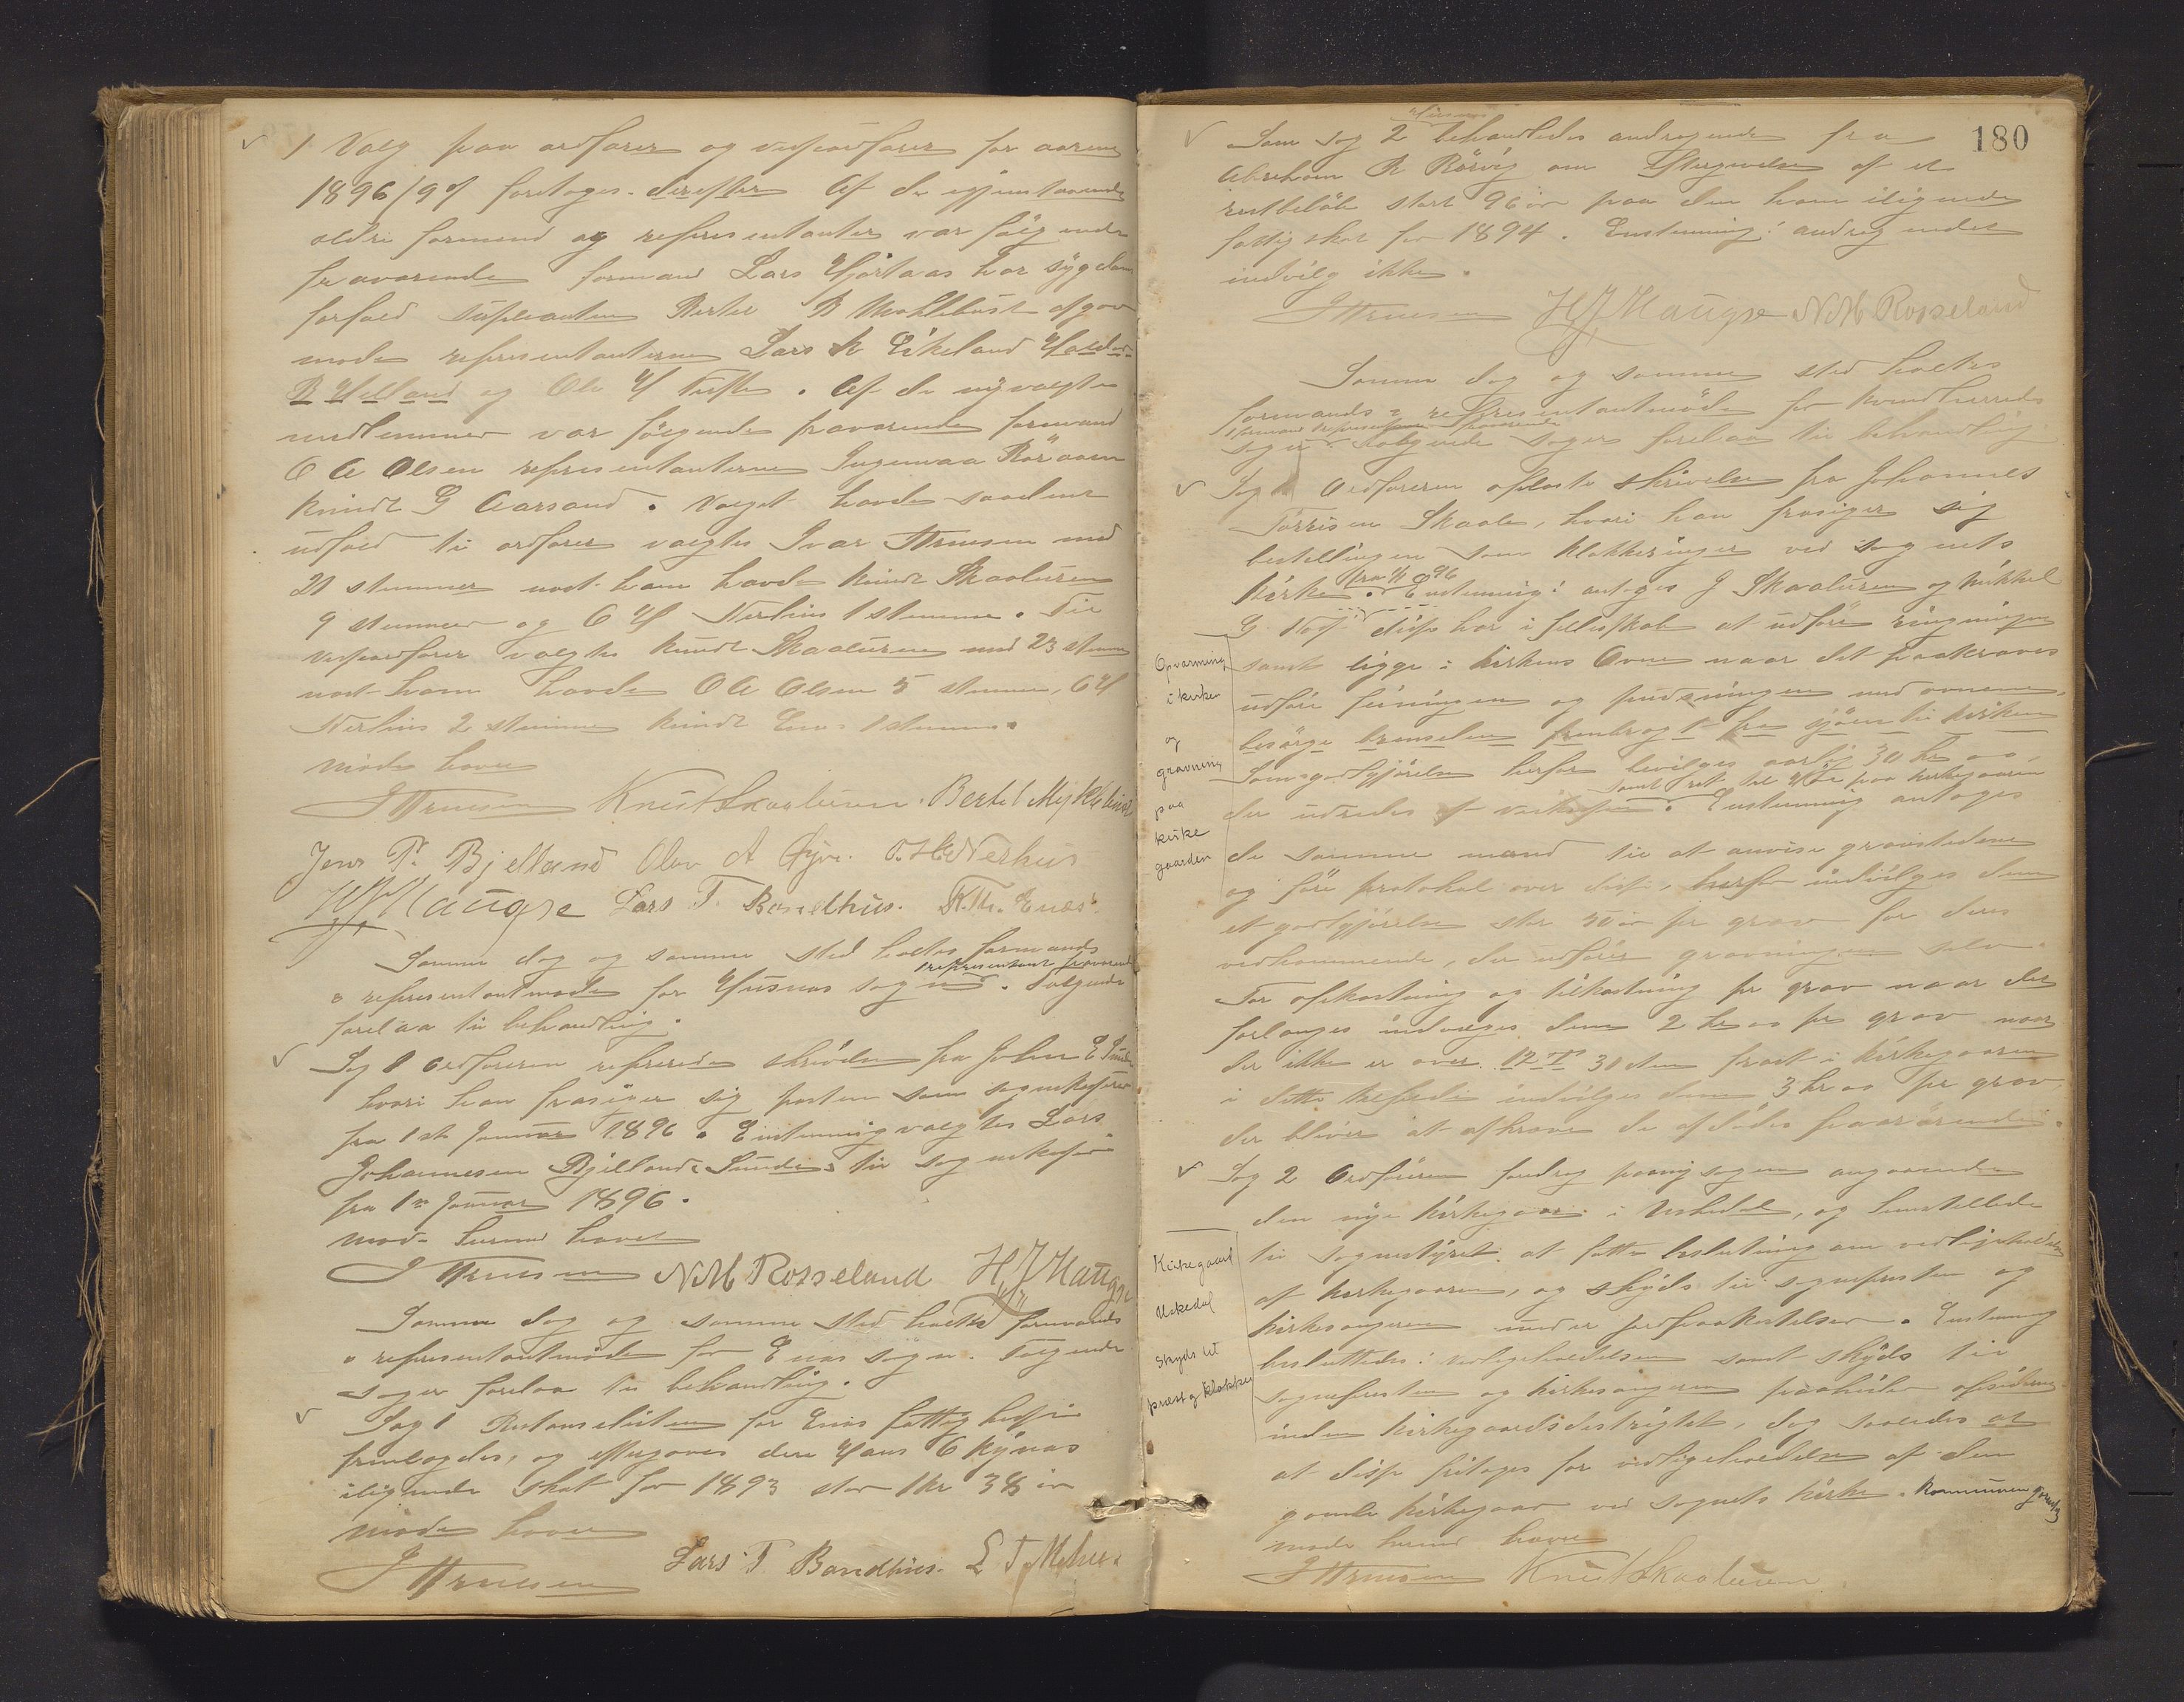 1 Valg paa ordfører og viseordfører for aarene
1896/97 foretoges derefter Af de gjenstaaende
ældre formænd og representanter var følgende
fraværende formand Lars Hjortaas har sygdoms
forfald suppleanten Bertel B Myklebust afgav
møde representanterne Lars K Eikeland Haldor
B Helland og Ole H Tufte. Af de nyvalgte
medlemmer var følgende fraværende formand
O A Olsen representanterne Ingemaa Røraaen
Knudt G Aarsand. Valget havde saadant
udfald til ordfører valgtes Ivar Truesen med
21 stemmer næst ham havde Knudt Skaaluren
9 stemmer og O H Nerhus 1 stemme. Til
viseordfører valgtes Knudt Skaaluren med 23 stemmer
næst ham havde O A Olsen 5 stemmer, O H
Nerhus 2 stemmer Knudt Enes 1 stemme.
møde hævet
I Truesen Knut Skaaluren. Bertel Myklebust
Jens P. Bjelland Olav A Gjøn. O. H. Nerhus
H J Haugse Lars T. Bondhus. K. Th. Enæs.
Samme dag og samme sted holdtes formands
1 representant fraværende
& representantmøde for Husnæs sogn. Følgende
forelaa til behandling.
Sag 1 Ordføreren refererede skrivelse fra John E Sunde
hvori han frasiger sig posten som sognekasserer
fra 1ste Januar 1896. Enstemmig valgtes Lars
Johannesen Bjelland Sunde til sognekasserer
fra 1ste Januar 1896.
møde hermed hævet
I Truesen N M Rosseland H J Haugse
Samme dag og samme sted holdtes formands
& representantmøde for Enæs sogn. Følgende
sager forelaa til behandling.
Sag 1 Restanselisten for Enæs fattigkasse
fremlagdes, og eftergaves den Hans O Kynæs
ilignede skat for 1893 stor 1 kr 38 øre
møde hævet
I Truesen Lars T. Bondhus. L T Mehus.
180
Husnæs
Som sag 2 behandledes andragende fra
Abraham R Rørvig om Eftergivelse af et
restbeløb stort 96 øre paa den ham ilignede
fattigskat for 1894. Enstemmig: andragendet
indvilges ikke.
I Truesen H J Haugse N M Rosseland
Samme dag og samme sted holdtes
formands & representantmøde for Kvindherreds
1 formand representanter fraværende
sogn følgende sager forelaa til behandling
Sag 1 Ordføreren oplæste skrivelse fra Johannes
Tørrisen Skaale, hvori han frasiger sig
bestillingen som klokkeringer ved sognets
fra 1/1 96
kirke. Enstemmig: antages J Skaaluren og Mikkel
G. disse har i fælleskab at udføre ringningen
samt ligge i kirkens Ovne naar det paakræves
udføre feiningen og pudsningen med ovnene,
besørge brænselen frembragt fra sjøen til kirken
Som godtgjørelse herfor bevilges aarlig 30 kr 00,
samt ret til Høet paa kirkegaarden
der udredes af . Enstemmig antoges
de samme mænd til at anvise gravstederne
og føre protokol over disse, herfor indvilges dem
et godtgjørelse stor 50 øre pr grav for deres
vedkommende, der udfører gravningen selv.
For opkastning og tilkastning pr grav naar det
forlanges indvilges dem 2 kr 00 pr grav naar
der ikke er over 12 T 30 ctm frost i kirkegaarden
i dette tilfælde indvilges dem 3 kr 00 pr grav
der bliver at afkræve de afdødes paarørende.
Sag 2 Ordføreren foredrog paany sagen angaaende
den nye kirkegaard i Uskedal, og henstillede
til sognestyret at fatte beslutning om vedligeholdelse
af kirkegaarden, og skyds til sognepresten og
kirkesangeren under jordpaakastelser. Enstemmig
besluttedes: vedligeholdelsen samt skyds til
sognepresten og kirkesangeren paahviler opsidderne
inden kirkegaardsdistriktet, dog saaledes at
at disse fritages for vedligeholdelse af den
gamle kirkegaard ved sognets kirke. Kommunen
møde hermed hævet
I Truesen Knut Skaaluren
Opvarming
i kirken
og
gravning
paa
kirke
gaarden
Kirkegaard
Uskedal
Skyds til
prest og klokker